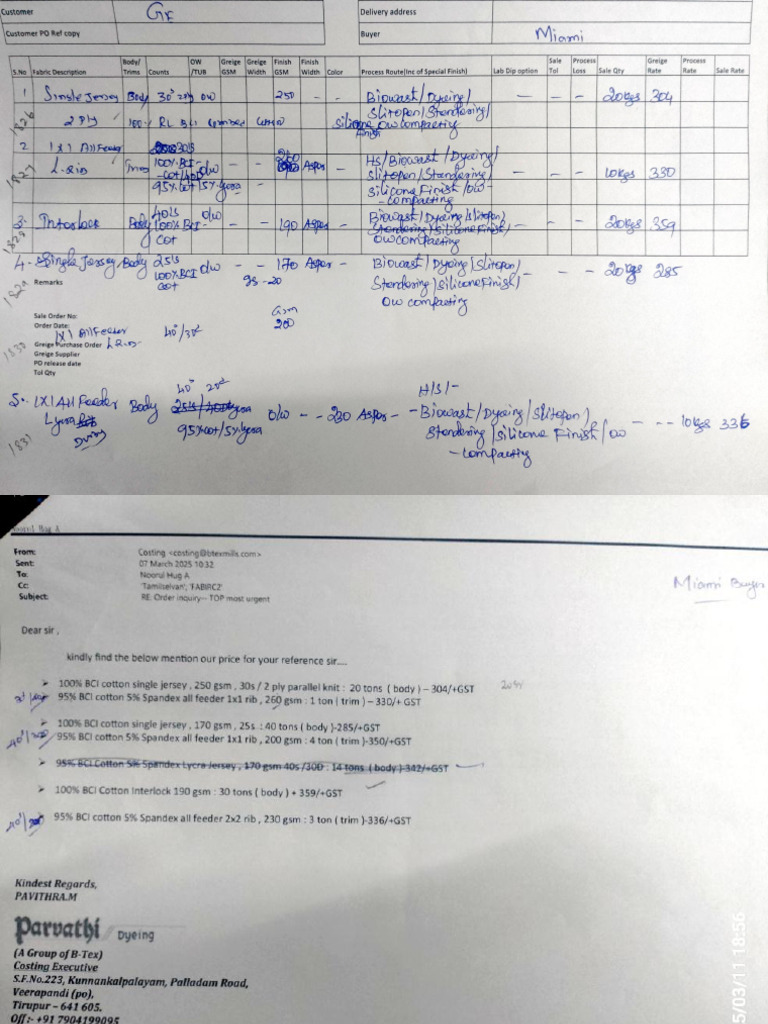 Customer GE Delivery address
Customer PO Ref copy Buyer Miami
S.No Fabric Description Body/Trims Counts OW/TUB Greige GSM Greige Width Finish GSM Finish Width Color Process Route(Inc of Special Finish) Lab Dip option Sale Tol Process Loss Sale Qty Greige Rate Process Rate Sale Rate
1 Single Jersey Body 30s 2ply O/W 250 - - Biowash/Dyeing/ - - - 20kgs 304
2 Ply 100% Slitopen/Stendering/
1826 silicone Finish O/W compacting
2 1X1 All Feeder 30s
1827 L-Rib Trims 100% BCI O/W - - 260 Asper - HS/Biowash/Dyeing/ - - - 10kgs 330
-cot/40D Slitopen/Stendering/
95% cot/5% lycra silicone Finish/OW
-compacting
3. Interlock Body 40s O/W - 190 Asper - Biowash/Dyeing/Slitopen/ - - - 20kgs 359
1828 100% BCI Stendering/Silicone Finish/
cot OW compacting
4. Single Jersey Body 25s O/W - - 170 Asper - Biowash/Dyeing/Slitopen/ - - - 20kgs 285
1829 100% BCI Stendering/silicone Finish/
cot OW compacting
Remarks
Sale Order No: Gsm
Order Date: 200
1X1 All Feeder 40s/30d
1830 Greige Purchase Order L Rib
Greige Supplier
PO release date
Tol Qty
40s 20d H/S/-
5. 1X1 All Feeder Body O/W - - 230 Asper - - Biowash/Dyeing/Slitopen/ - - - 10kgs 336
Lycra 95% cot/5% lycra Stendering/silicone Finish/OW
1831 -compacting
From: Costing <costing@btexmills.com>
Sent: 07 March 2025 10:32
To: Noorul Huq A
Cc: 'Tamilselvan'; 'FABIRC2'
Subject: RE: Order inquiry--- TOP most urgent
Miami Buyer
Dear sir ,
kindly find the below mention our price for your reference sir....
100% BCI cotton single jersey , 250 gsm , 30s / 2 ply parallel knit : 20 tons ( body ) – 304/+GST
95% BCI cotton 5% Spandex all feeder 1x1 rib , 260 gsm : 1 ton ( trim ) – 330/+ GST
100% BCI cotton single jersey , 170 gsm , 25s : 40 tons ( body )-285/+GST
95% BCI cotton 5% Spandex all feeder 1x1 rib , 200 gsm : 4 ton ( trim )-350/+GST
95% BCI Cotton 5% Spandex Lycra Jersey , 170 gsm 40s /30D : 14 tons ( body )-342/+GST
100% BCI Cotton Interlock 190 gsm : 30 tons ( body ) + 359/+GST
95% BCI cotton 5% Spandex all feeder 2x2 rib , 230 gsm : 3 ton ( trim )-336/+GST
Kindest Regards,
PAVITHRA.M
Parvathi Dyeing
(A Group of B-Tex)
Costing Executive
S.F.No.223, Kunnankalpalayam, Palladam Road,
Veerapandi (po),
Tirupur – 641 605.
Off :- +91 7904199095
5/03/11 18:56